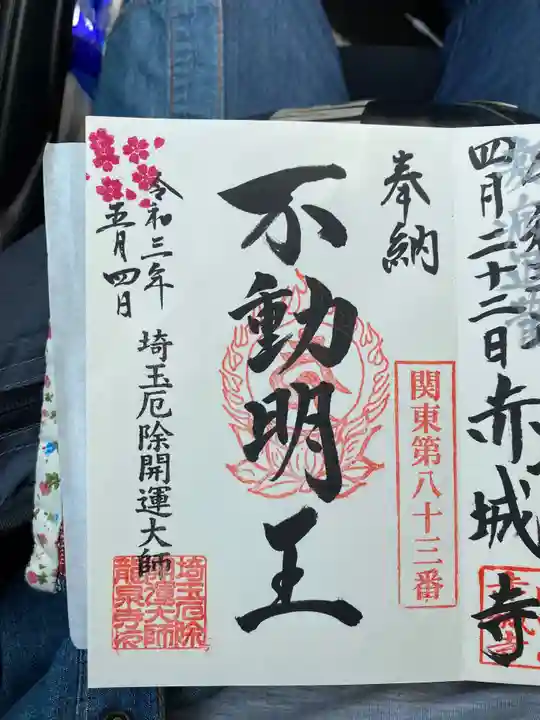 四月二十二日
赤城寺
奉納
関東第八十三番
不動明王
令和三年
五月四日
埼玉厄除開運大師
埼玉厄除
開運大師
龍泉寺印